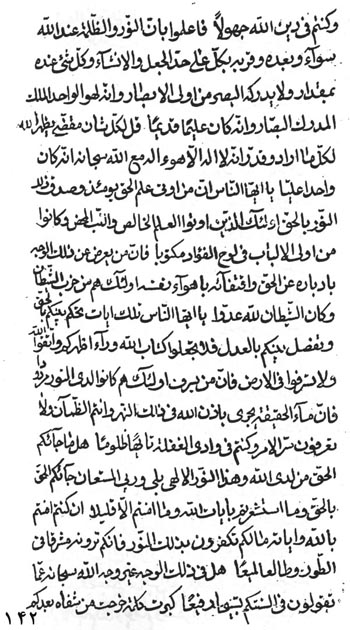 وكنتم فى دين الله جهولاً فاعلموا بان النور والظلمة عند الله
سوآء وبعده وقربه بكل على حد الجعل والانشآء وكل شئ عنده
بمقدار ولا يدركه البصر من اولى الابصار وانه لهو الواحد الملك
المدرك البصار وانه كان عليما قديما قل لكل شان مقتضى يظهر الله
لكل ما اراد وقدر انه لا اله الا هو ءاله مع الله سبحانه انه كان
واحدا عليا يا ايها الناس ان من اوتى علم الحق يومئذ وصدق ذلك
النور بالحق اولئك الذين اوتوا العلم الخالص واللب المحض وكانوا
من اولى الالباب فى لوح الفؤاد مكتوبا فان من يعرض عن ذلك الوجه
بادباره عن الحق واقتفآئه باهوآء نفسه اولئك هم من حزب الشيطان
وكان الشيطان لله عدوا يا ايها الناس تلك ايات نحكم بينكم بالحق
ونفصل بينكم بالعدل فلا تجعلوا كتاب الله ورآء اظهركم واتقوا الله
ولا تسرفوا فى الارض فان من يسرف اولئك هم كانوا لدى النور
فان مآء الحقيقة يجرى باذن الله فى ذلك النهر وانتم الظمآن ولا
تعرفون سر الامر وكنتم فى وادى الغفلة تائها ظلوما هل ما جآئكم
الحق من لدى الله وهذا النور الالهى بلى وربى المستعان جآئكم الحق
بالحق وما استشرتم بايات الله وما امنتم الا قليلا ان كنتم امنتم
بالله واياته مالكم تكفرون بذلك النور فانكم ترونه مشرقا فى
الطور وطالعا لميعا هل فى ذلك الوجه غير وجه الله سبحانه عما
تقولون فى السنتكم تسبيحا رفيعا كبرت كلمة خرجت من شفاه بعدكم
١٤٢